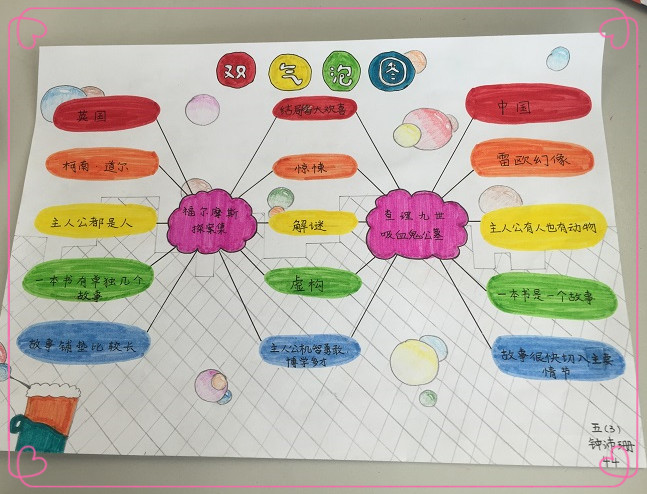 双气泡图
英国
柯南·道尔
主人公都是人
一本书有单独几个
故事
故事铺垫比较长
福尔摩斯
探案集
结局皆大欢喜
惊悚
解谜
虚构
主人公机智勇敢
博学多才
查理九世
吸血鬼公墓
中国
雷欧幻像
主人公有人也有动物
一本书是一个故事
故事很快切入主要
情节
五(3)
钟沛珊
44